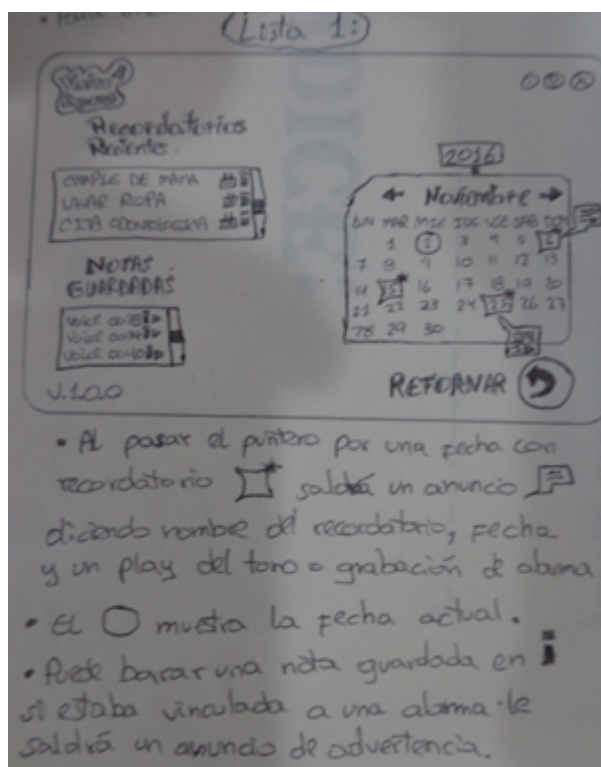 Lista 1:)
Recordatorios
Recientes.
CUMPLE DE MAMA
LAVAR ROPA
CITA ODONTOLOGIA
NOTAS
GUARDADAS
V.1.0.0
2016
Noviembre
LUN MAR MIE JUE VIE SAB DOM
1 2 3 4 5 6
7 8 9 10 11 12 13
14 15 16 17 18 19 20
21 22 23 24 25 26 27
28 29 30
RETORNAR
• Al pasar el puntero por una fecha con
recordatorio saldrá un anuncio
diciendo nombre del recordatorio, fecha
y un play del tono o grabación de alarma
• El muestra la fecha actual.
• Puede borrar una nota guardada en
si estaba vinculada a una alarma le
saldrá un anuncio de advertencia.